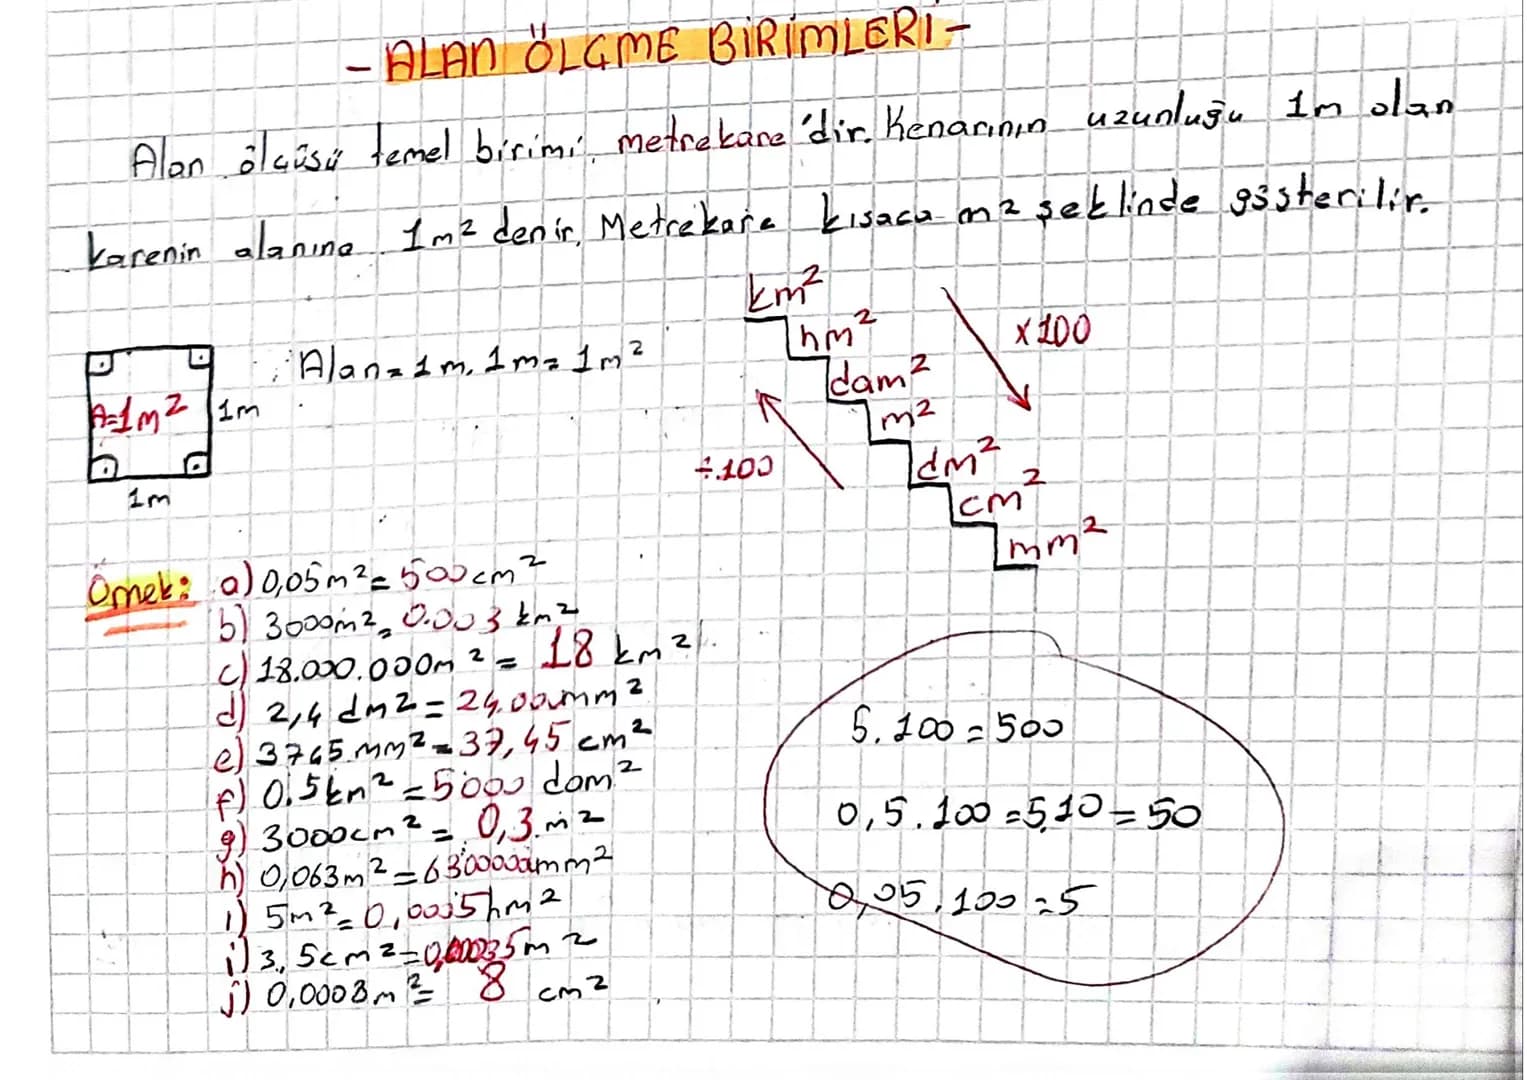 - ALAN ÖLÇME BİRİMLERİ -
Alan ölçüsü temel birimi, metrekare 'dir. Kenarının uzunluğu 1m olan
karenin alanına 1m² denir. Metrekare kısaca m² şeklinde gösterilir.
Alan = 1m. 1m = 1m²
A=1m²
1m
1m
km²
hm²
dam²
m²
dm²
cm²
mm²
x100
÷100
Örnek: a) 0,05m² = 500cm²
b) 3000m² = 0.003 km²
c) 18.000.000m² = 18 km²
d) 2,4 dm² = 24.000mm²
e) 3745 mm² = 37,45 cm²
f) 0.5km² = 5000 dam²
g) 3000cm² = 0,3 m²
h) 0,063m² = 63000mm²
ı) 5m² = 0,0005hm²
i) 3,5cm² = 0,00035m²
j) 0,0008m² = 8 cm²
5.100 = 500
0,5.100 = 5.10 = 50
0,05.100 = 5